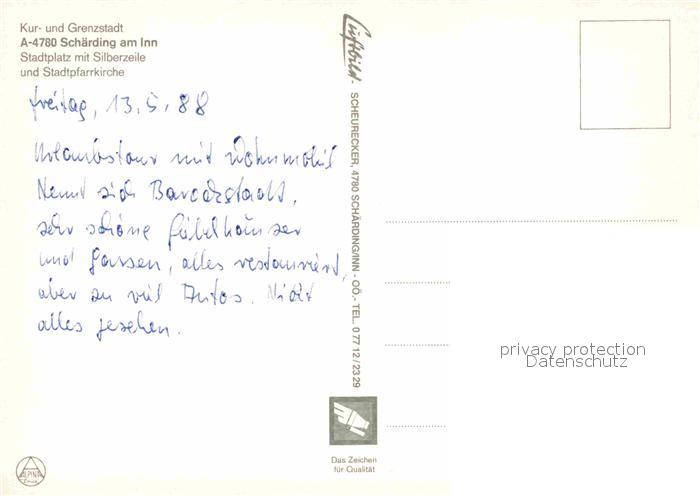 Kur- und Grenzstadt
A-4780 Schärding am Inn
Stadtplatz mit Silberzeile
und Stadtpfarrkirche
Freitag, 13.5.88
Urlaubstour mit Wohnmobil
Nennt sich Barockstadt,
sehr schöne Giebelhäuser
und Gassen, alles restauriert,
aber zu viel Autos. Nicht
alles gesehen.
Luftbild - SCHEURECKER, 4780 SCHÄRDING/INN - OÖ,- TEL. 0 77 12 / 23 29
Das Zeichen
für Qualität
ALPINA
privacy protection
Datenschutz